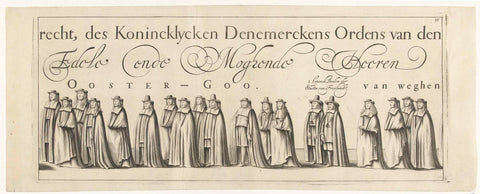 recht, des Konincklycken Denemerckens Ordens van den
Edele ende Moghende Heeren
OOSTER-GOO. van weghen